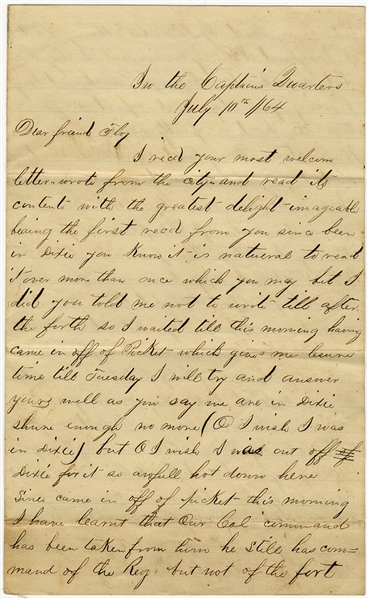 In the Captains Quarters
July 10th /64
Dear friend Floy
I recd your most welcom
letter wrote from the city and read its
contents with the greatest delight imageable
being the first recd from you since been
in Dixie you know it is natueral to read
it over more than once which you may bet I
did you told me not to wrote till after
the forth so I waited till this morning having
came in off of Picket which gives me leisure
time till Tuesday I will try and answer
yours well as you say we are in Dixie
shure enough no more (O I wish I was
in Dixie) but O I wish I was out off
Dixie for it so awfull hot down here
Since came in off of picket this morning
I have learnt that Our Col command
has been taken from him he still has com-
mand of the Reg but not of the fort